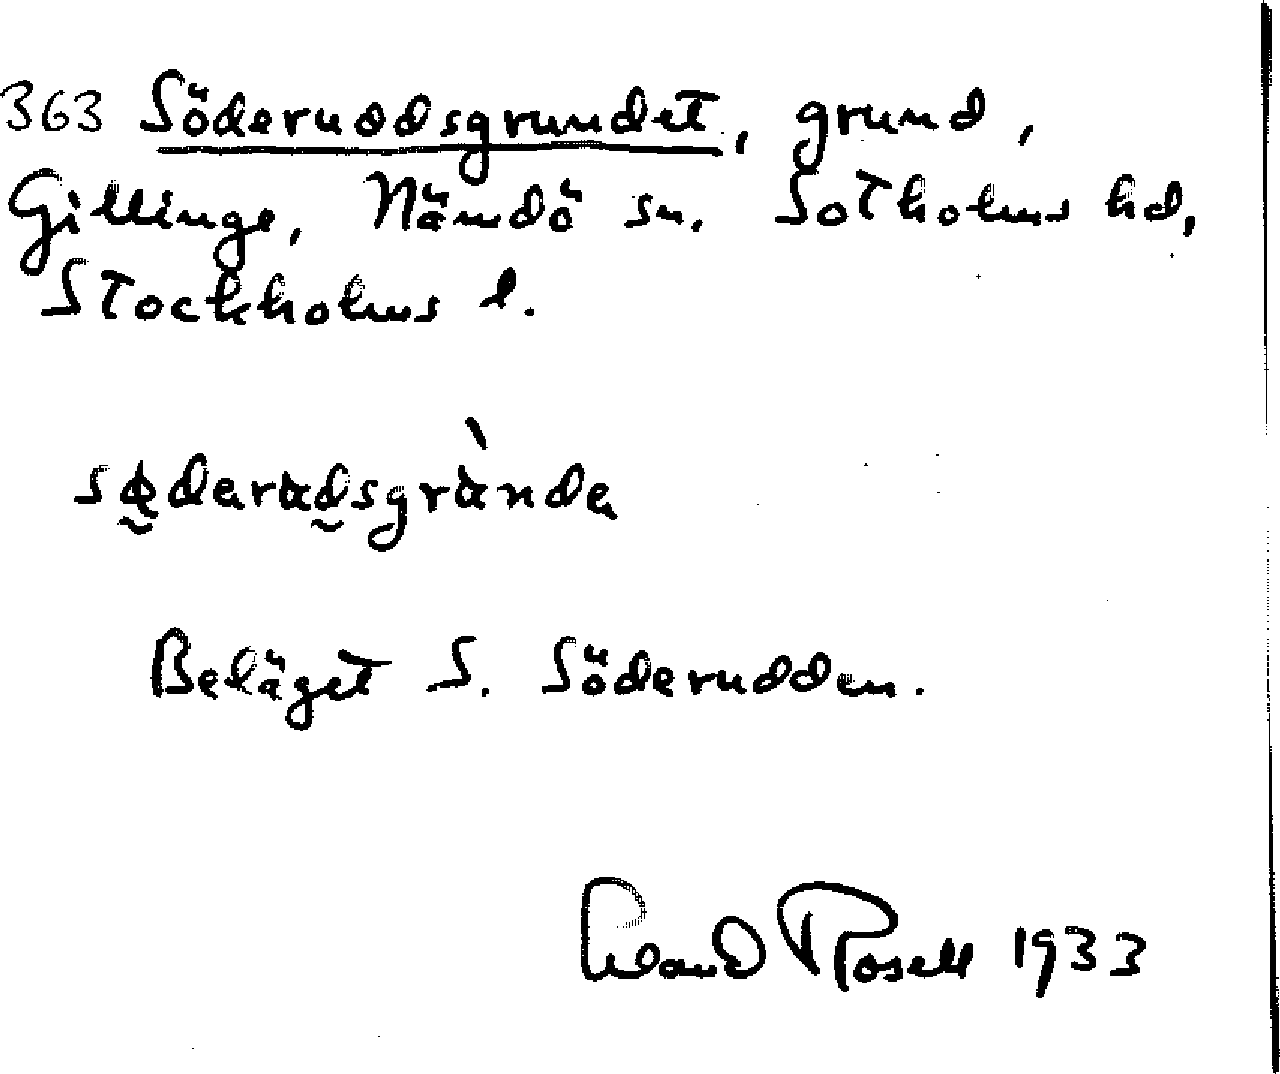 363 Söderuddsgrundet, grund,
Gillinge, Nämdö sn. Sotholms hd,
Stockholms l.
Beläget S. Söderudden.
Rosell 1933